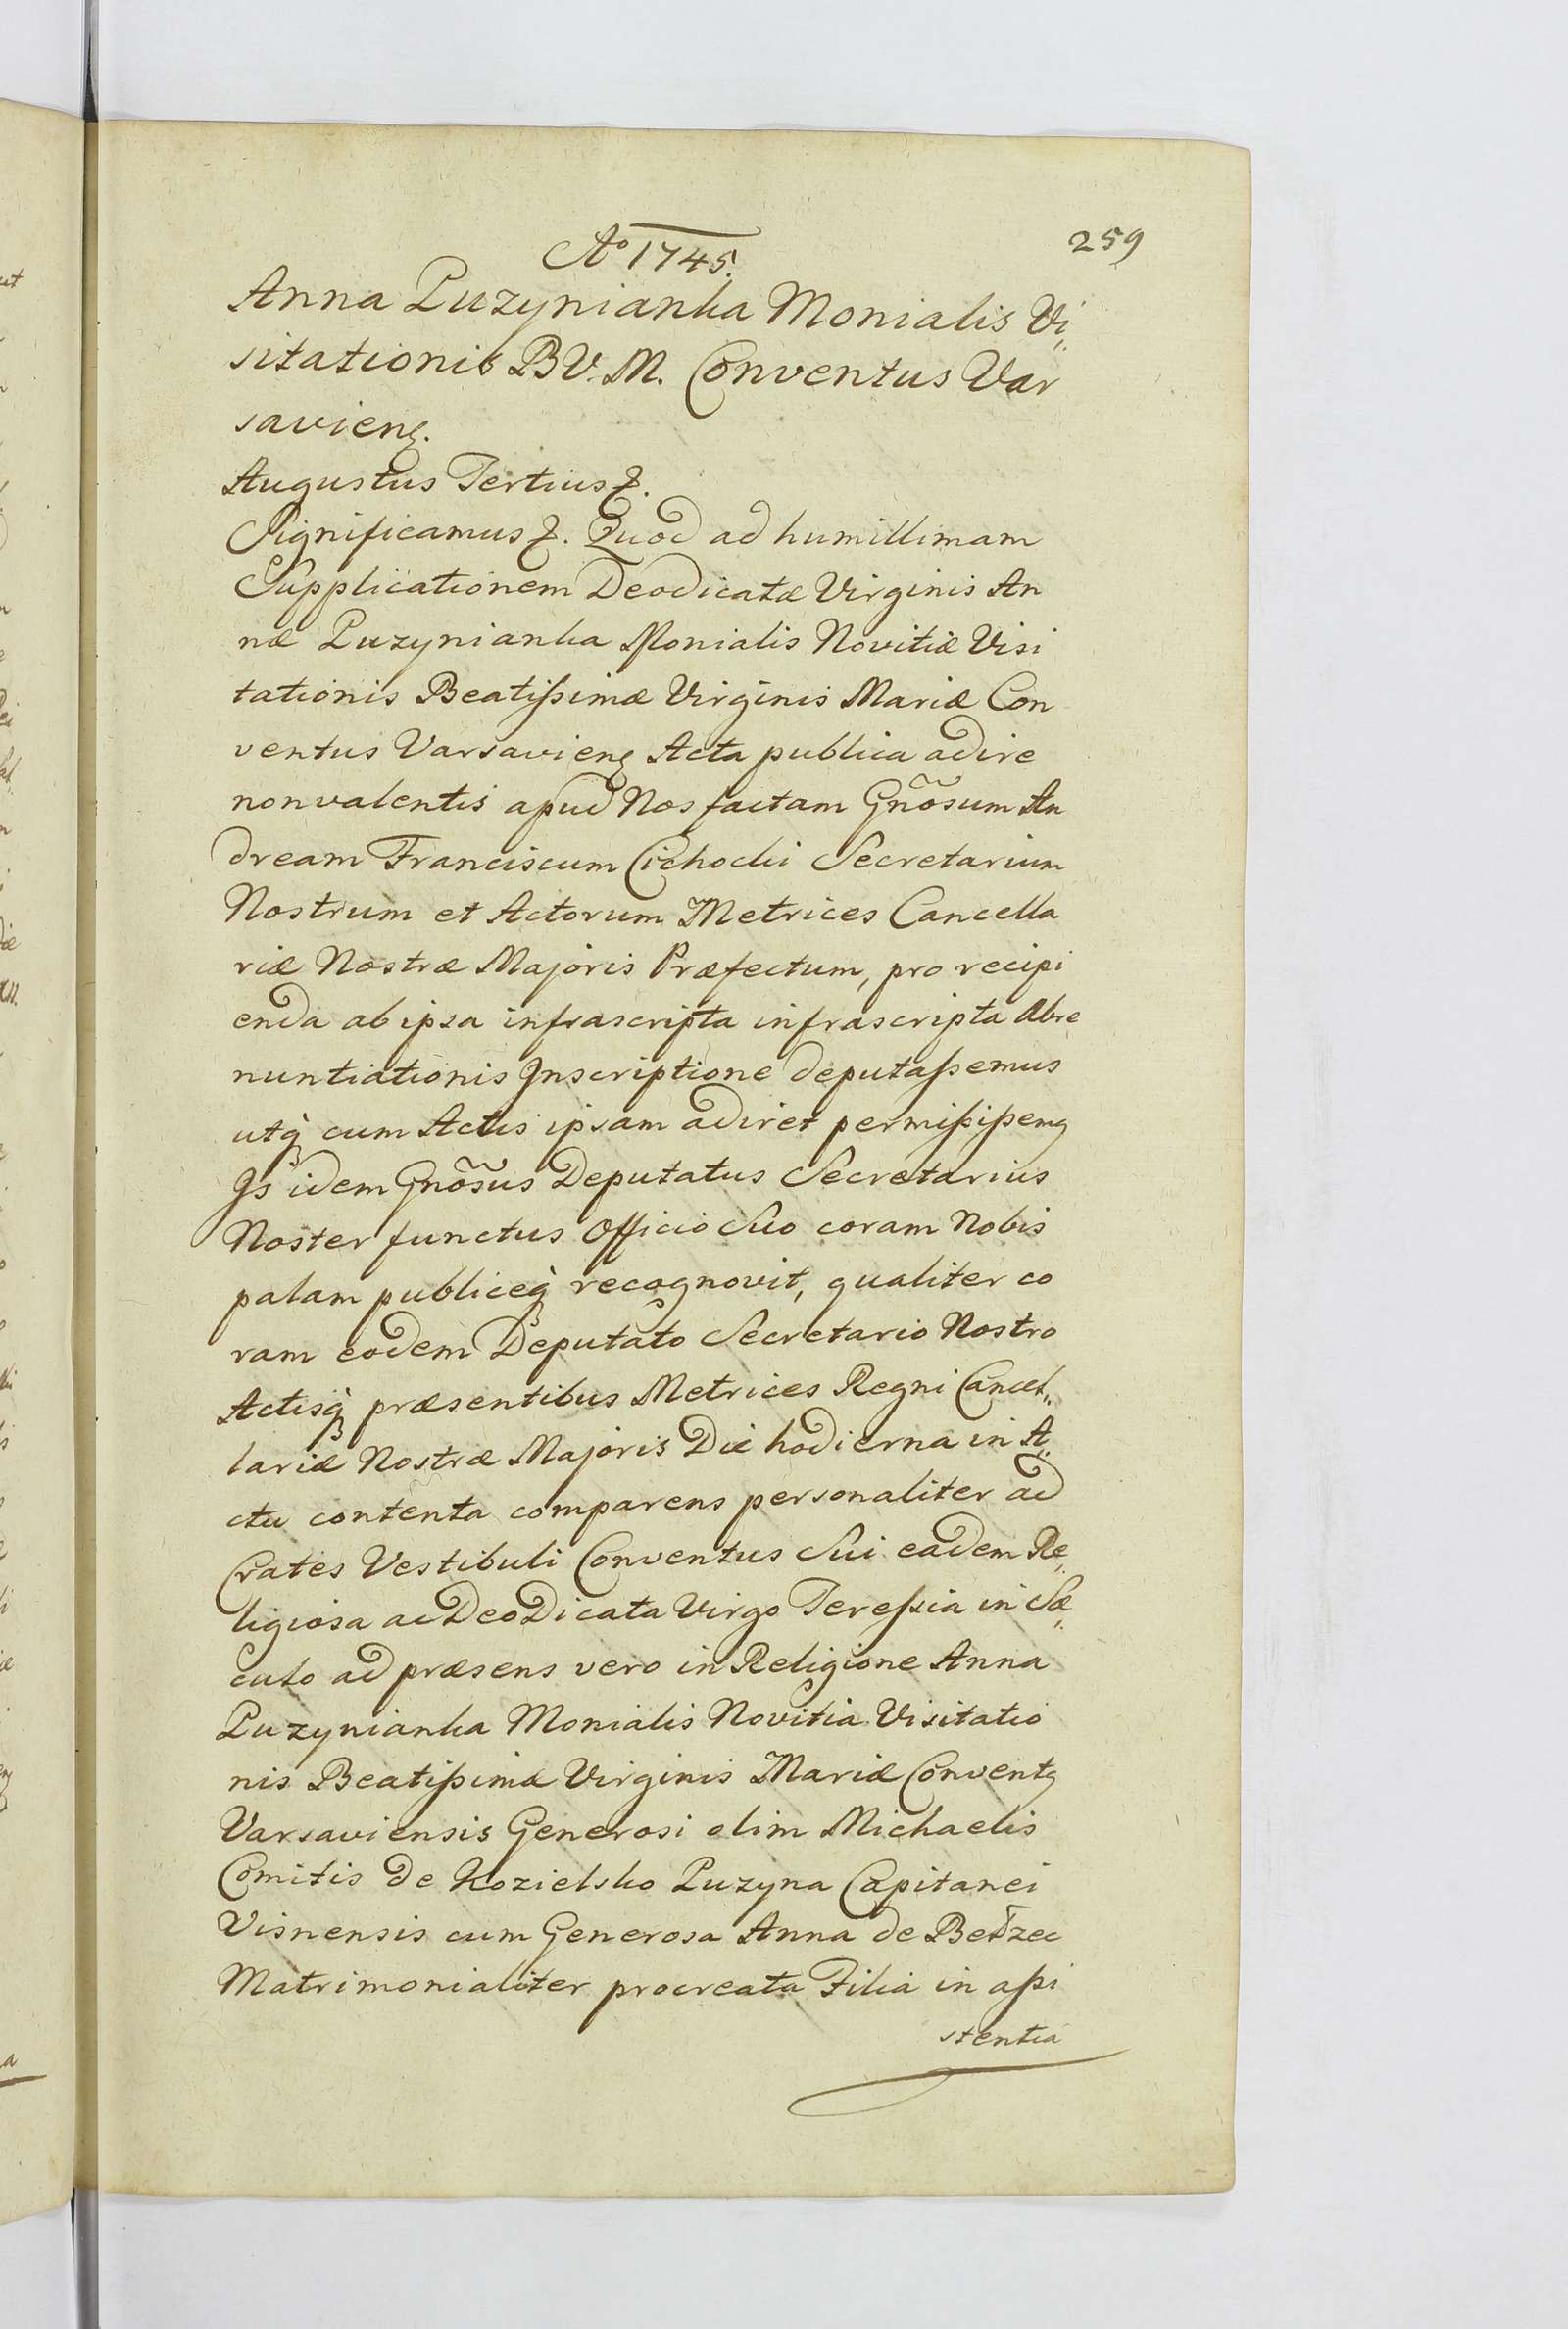 259
Aº 1745.
Anna Puzynianka Monialis Vi„
sitationis B V. M. Conventus Var
savienẜ.
Augustus Tertius ꝛ.
Significamus ꝛ. Quod ad humillimam
Supplicationem Deodicatæ Virginis An
næ Puzynianka Monialis Novitiæ Visi
tationis Beatißimæ Virginis Mariæ Con
ventus Varsavienẜ Acta publica adire
non valentis apud Nos factam Gnõsum An
dream Franciscum Cichocki Secretarium
Nostrum et Actorum Metrices Cancella
riæ Nostræ Majoris Præfectum, pro recipi
enda ab ipsa infrascripta infrascripta Abre
nuntiationis Inscriptione deputaßemus
utq̀ cum Actis ipsam adiret permisißemꝰ
Is idem Gnõsus Deputatus Secretarius
Noster functus Officio Suo coram Nobis
palam publiceq̀ recognovit, qualiter co
ram eodem Deputato Secretario Nostro
Actisq̀ præsentibus Metrices Regni Cancel„
lariæ Nostræ Majoris Die hodierna in A„
ctu contenta comparens personaliter ad
Crates Vestibuli Conventus Sui eadem Re„
ligiosa ac Deo Dicata Virgo Tereßia in Sæ„
culo ad præsens vero in Religione Anna
Puzynianka Monialis Novitia Visitatio
nis Beatißimæ Virginis Mariæ Conventꝰ
Varsaviensis Generosi olim Michaelis
Comitis de Kozielsko Puzyna Capitanei
Visnensis cum Generosa Anna de Bełzec
Matrimonialiter procreata Filia in aßi
stentia